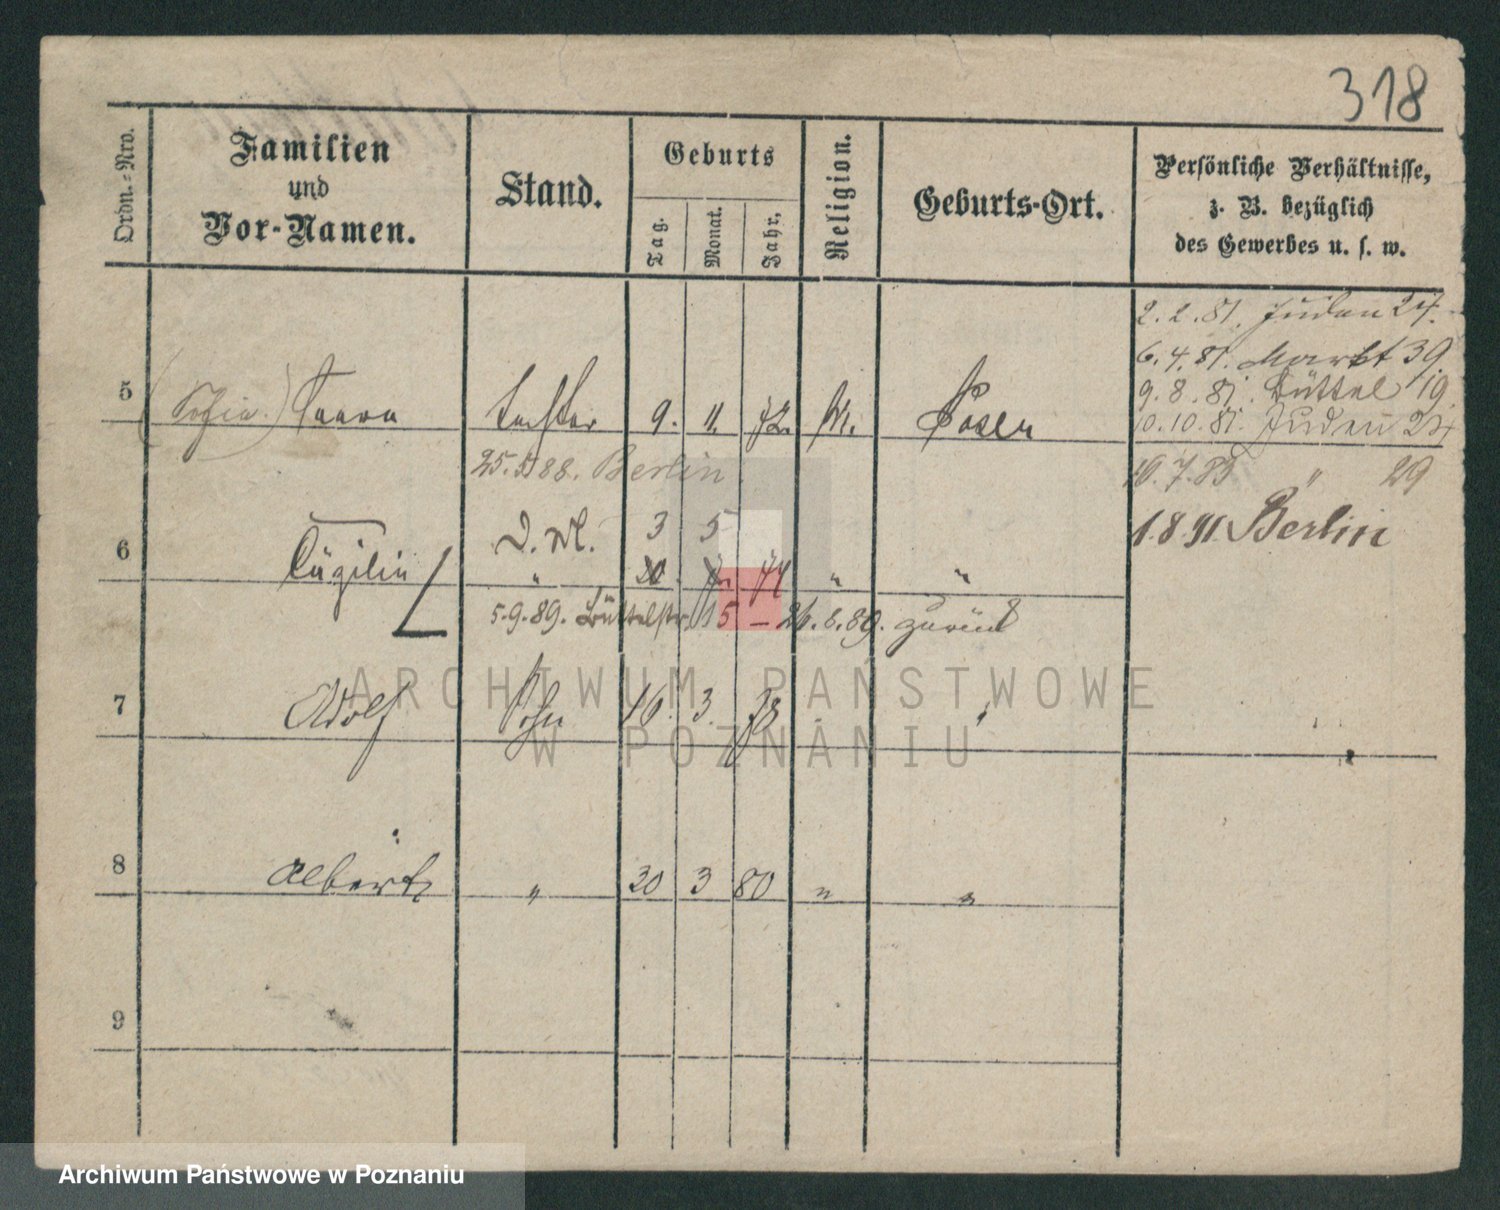 318
Ordn.-Nro.
Familien
und
Vor-Namen.
Stand.
Geburts
Tag.
Monat.
Jahr.
Religion.
Geburts-Ort.
Persönliche Verhältnisse,
z. B. bezüglich
des Gewerbes u. s. w.
2.2.81. Juden 27.
6.4.81. Markt 39.
9.8.81. Büttel 19.
10.10.81. Juden
5 (Sofie.) Tochter 9. 11. 72. M. Posen
7.83 " 29
25.5.88. Berlin
1.8.91. Berlin
D. M. 3 5
6 Cäzilie " 20. 74 " "
5.9.89. Büttelstr. 15 – 26.8.89. zurück
7 Adolf Sohn 16. 3. 78 "
8 Albert " 30 3 80 " "
9
ARCHIWUM PAŃSTWOWE
W POZNANIU
Archiwum Państwowe w Poznaniu